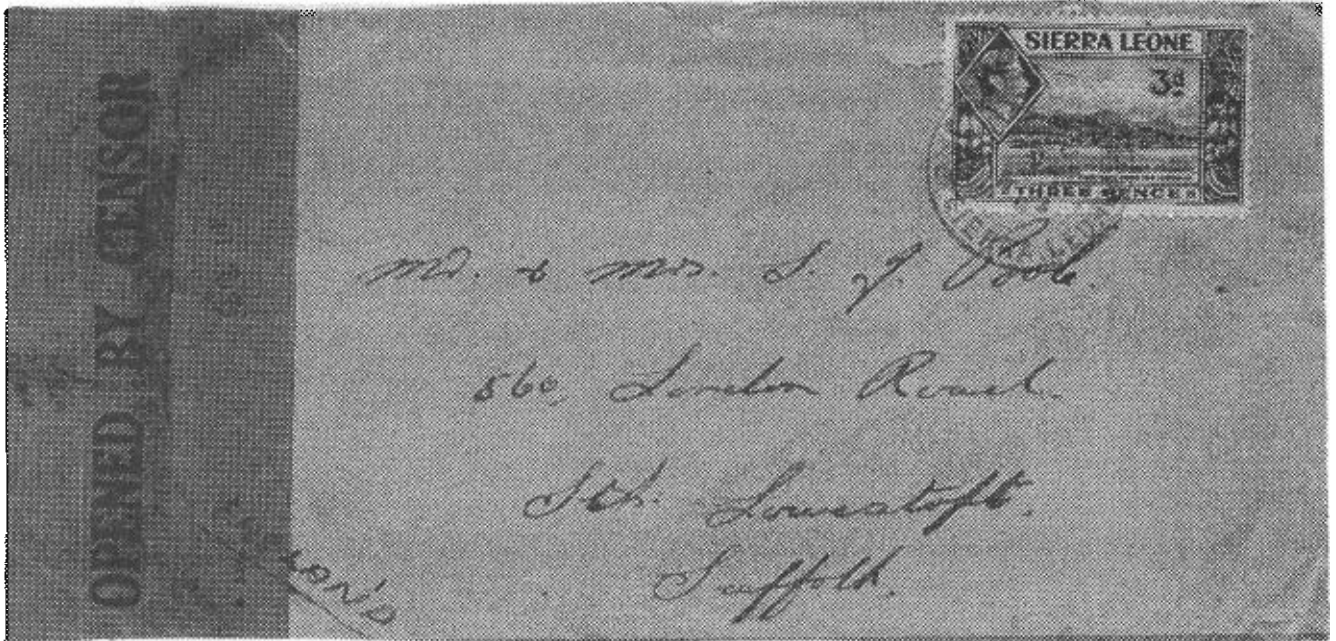 OPENED BY CENSOR
SIERRA LEONE
3d
THREE PENCE
SIERRA LEONE
Mr. & Mrs. S. J.
560, London Road.
Sth. Lowestoft.
Suffolk.